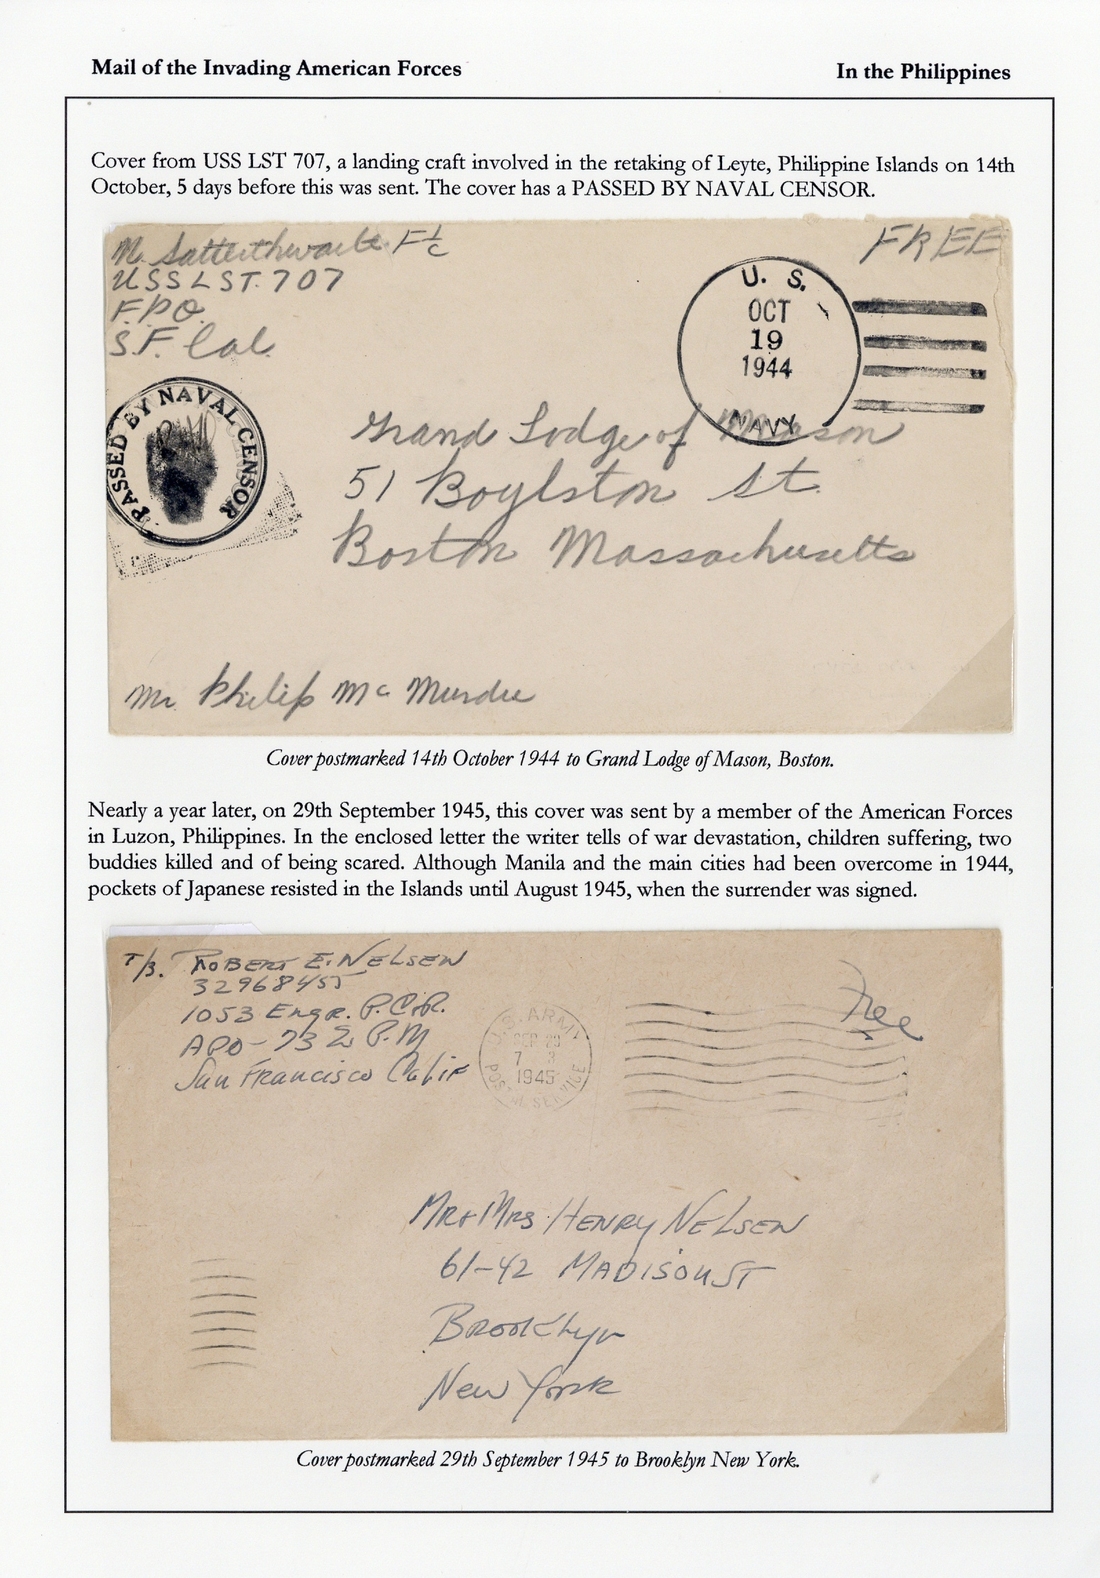 Mail of the Invading American Forces
In the Philippines
Cover from USS LST 707, a landing craft involved in the retaking of Leyte, Philippine Islands on 14th
October, 5 days before this was sent. The cover has a PASSED BY NAVAL CENSOR.
N. Satterthwaite F1/c
USS LST. 707
F.P.O.
S.F. Cal.
FREE
U. S.
OCT
19
1944
NAVY
PASSED BY NAVAL CENSOR
Grand Lodge of Mason
51 Boylston St.
Boston Massachusetts
Mr. Philip McMurdie
Cover postmarked 14th October 1944 to Grand Lodge of Mason, Boston.
Nearly a year later, on 29th September 1945, this cover was sent by a member of the American Forces
in Luzon, Philippines. In the enclosed letter the writer tells of war devastation, children suffering, two
buddies killed and of being scared. Although Manila and the main cities had been overcome in 1944,
pockets of Japanese resisted in the Islands until August 1945, when the surrender was signed.
ROBERT E. NELSEN
32968455
1053 Engr.
APO-73 % P.M
San Francisco Calif
Free
U.S. ARMY
SEP 29
1945
POSTAL SERVICE
Mr + Mrs HENRY NELSEN
61-42 MADISON ST
Brooklyn
New York
Cover postmarked 29th September 1945 to Brooklyn New York.